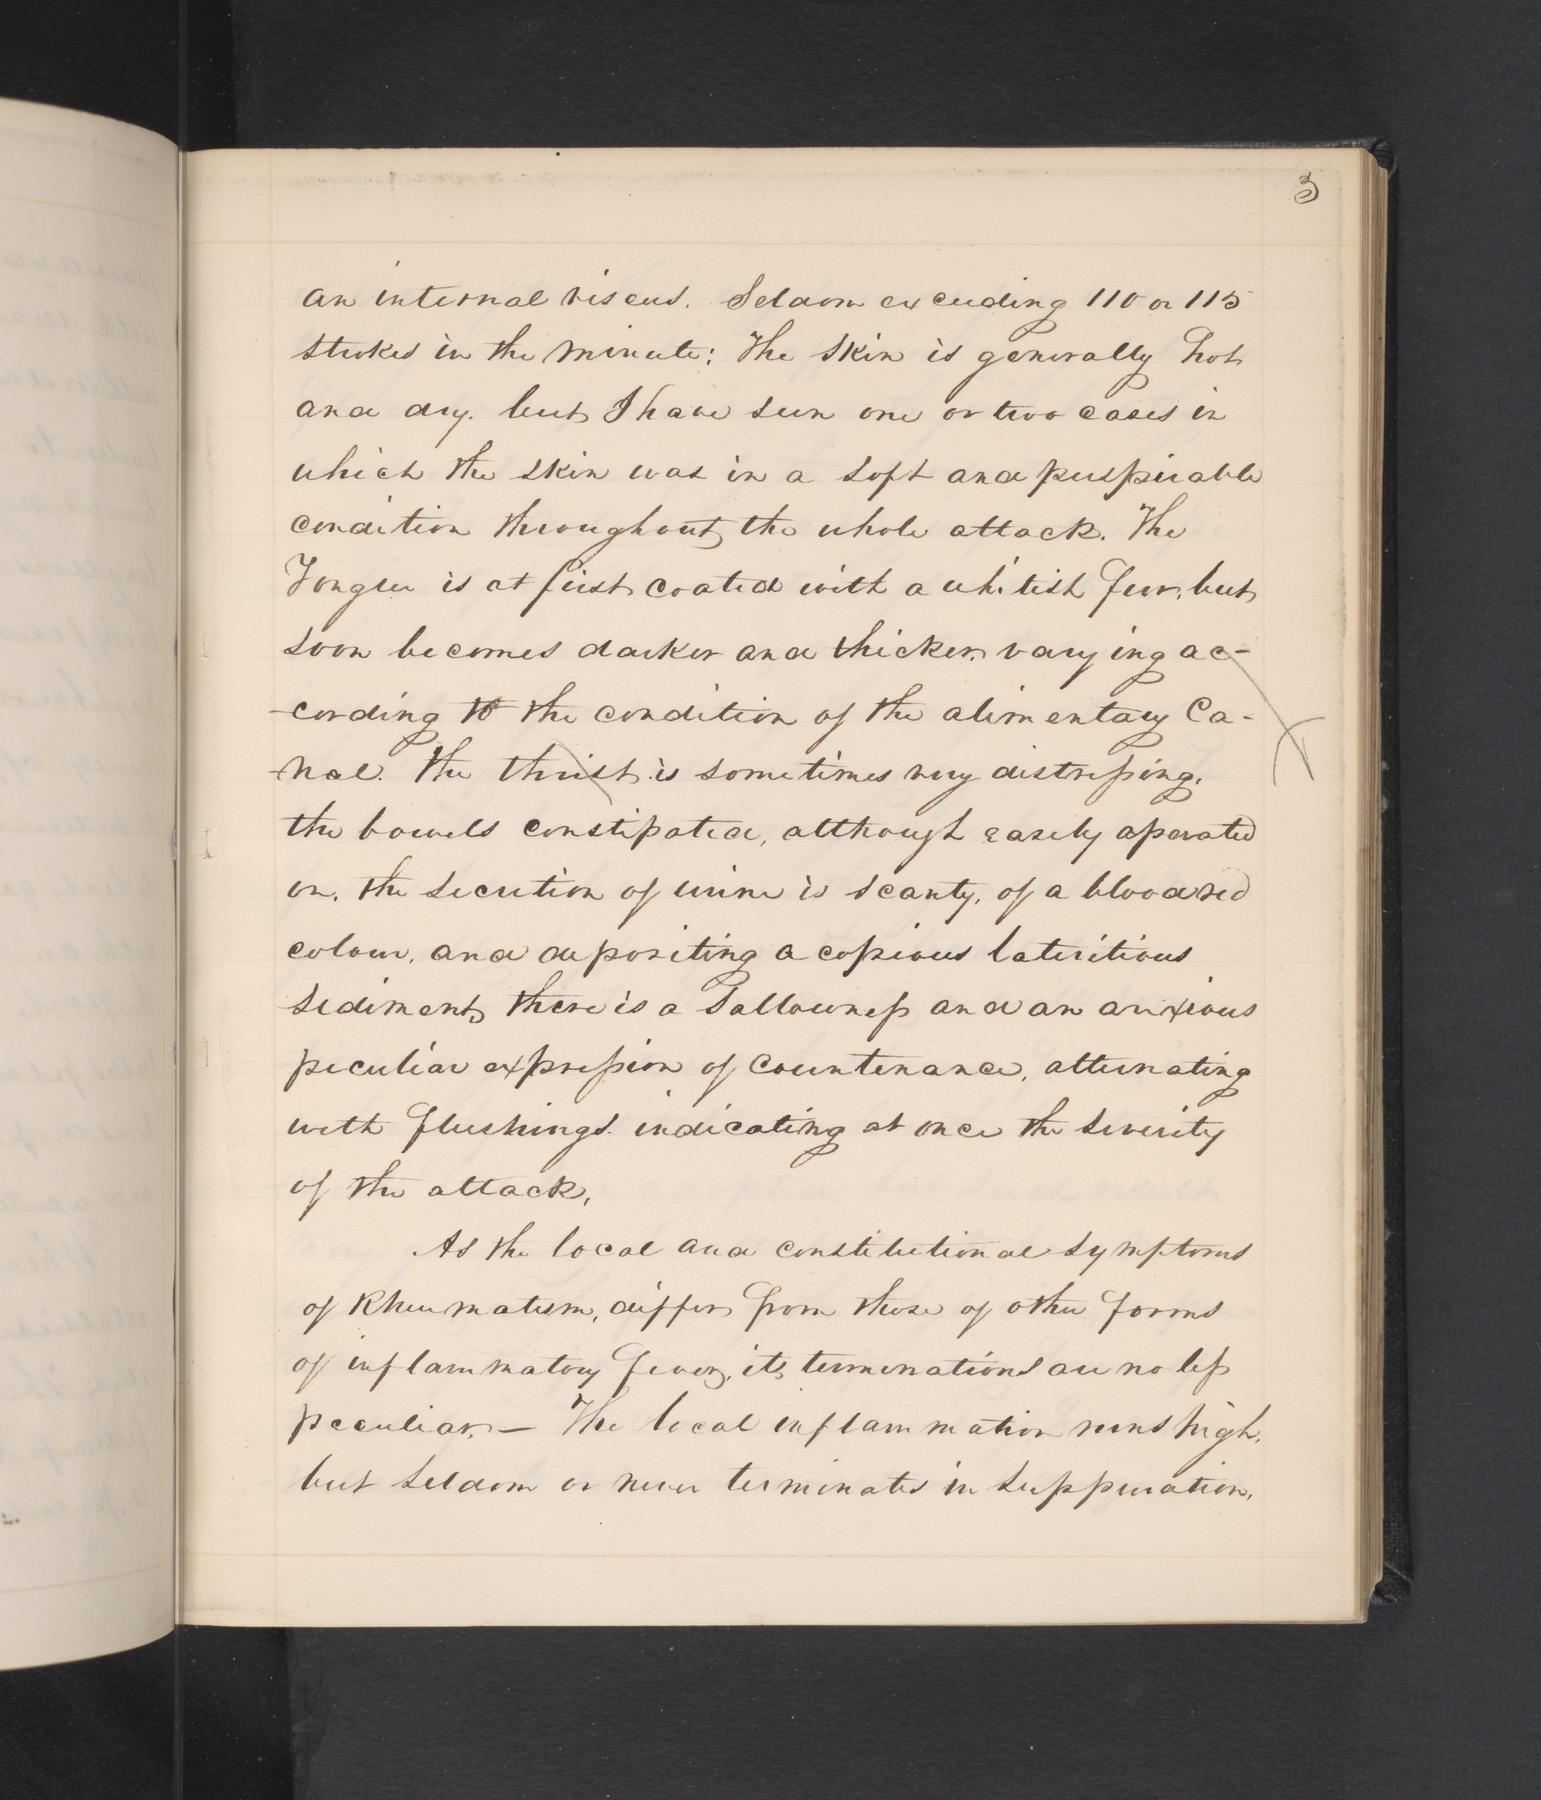 3
an internal viscus. Seldom exceeding 110 or 115
strokes in the minute; The skin is generally hot
and dry. but I have seen one or two cases in
which the skin was in a soft and perspirable
condition throughout the whole attack. The
Tongue is at first coated with a whitish fur, but
soon becomes darker and thicker, varying ac-
-cording to the condition of the alimentary Ca-
-nal. The thrist is sometimes very distressing.
the bowels constipated, although easely aperated
on. the secretion of urine is scanty, of a blood red
colour, and depositing a copious lateritious
sediment, there is a Sallowness and an anxious
peculiar expression of Countenance, alternating
with flushings indicating at once the severity
of the attack,
As the local and constitutional symptoms
of Rheumatism, differ from those of other forms
of inflammatory fever, its terminations are no less
peculiar, — The local inflammation runs high,
but seldom or never terminates in suppuration,